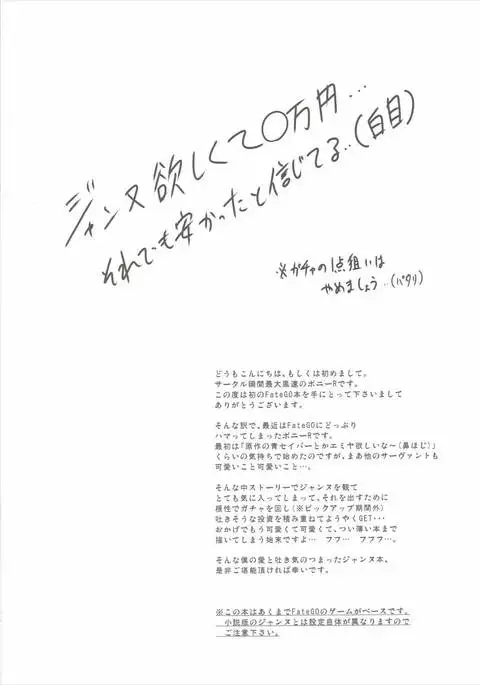 ジャンヌ欲しくて〇万円...
それでも安かったと信じてる..(白目)
※ガチャの1点狙いは
やめましょう..(パタリ)
どうもこんにちは、もしくは初めまして。
サークル瞬間最大風速のポニーRです。
この度は初のFateGO本を手にとって下さいまして
ありがとうございます。
そんな訳で、最近はFateGOにどっぷり
ハマってしまったポニーRです。
最初は「原作の青セイバーとかエミヤ欲しいな～(鼻ほじ)」
くらいの気持ちで始めたのですが、まあ他のサーヴァントも
可愛いこと可愛いこと…。
そんな中ストーリーでジャンヌを観て
とても気に入ってしまって、それを出すために
根性でガチャを回し(※ピックアップ期間外)
吐きそうな投資を積み重ねてようやくGET・・・
おかげでもう可愛くて可愛くて、つい薄い本まで
描いてしまう始末ですよ… フフ… フフフ…。
そんな僕の愛と吐き気のつまったジャンヌ本、
是非ご堪能頂ければ幸いです。
※この本はあくまでFateGOのゲームがベースです。
小説版のジャンヌとは設定自体が異なりますので
ご注意下さい。